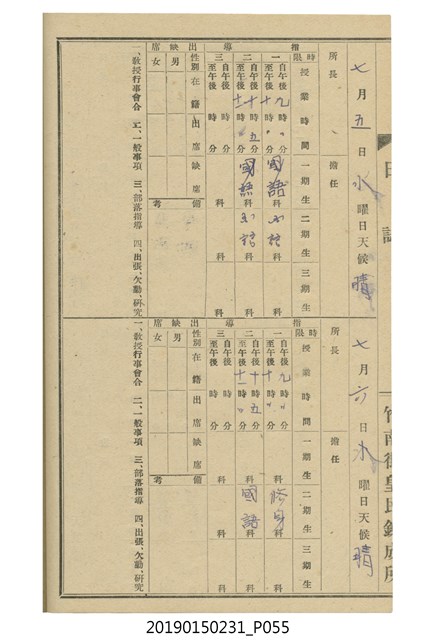 日誌
竹南街皇民鍊成所
七月五日 水曜日 天候 晴
所長 擔任
指導
時限 授業時間 一期生 二期生 三期生
一 自午後九時〃分 至午後十時〃分 國語科 科 科
二 自午後十時五分 至午後十一時〃分 科 科
三 自午後 時 分 至午後 時 分 科 科 科
出缺席
性別 在籍 出席 缺席 備考
男
女
一、教授行事會合 二、一般事項 三、部落指導 四、出張、欠勤、研究
七月六日 木曜日 天候 晴
所長 擔任
指導
時限 授業時間 一期生 二期生 三期生
一 自午後九時〃分 至午後十時〃分 科 修身科 科
二 自午後十時五分 至午後十一時〃分 科 國語科 科
三 自午後 時 分 至午後 時 分 科 科 科
出缺席
性別 在籍 出席 缺席 備考
男
女
一、教授行事會合 二、一般事項 三、部落指導 四、出張、欠勤、研究
20190150231_P055